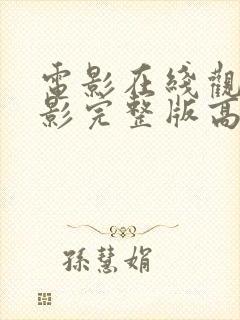 電影在綫觀
影完整版高
孫慧娟